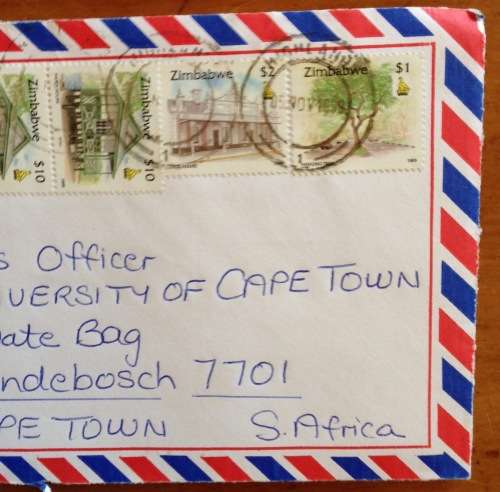 Zimbabwe $10
Zimbabwe $10
Zimbabwe $2
Zimbabwe $1
s Officer
VERSITY OF CAPE TOWN
ate Bag
ndebosch 7701
PE TOWN S. Africa